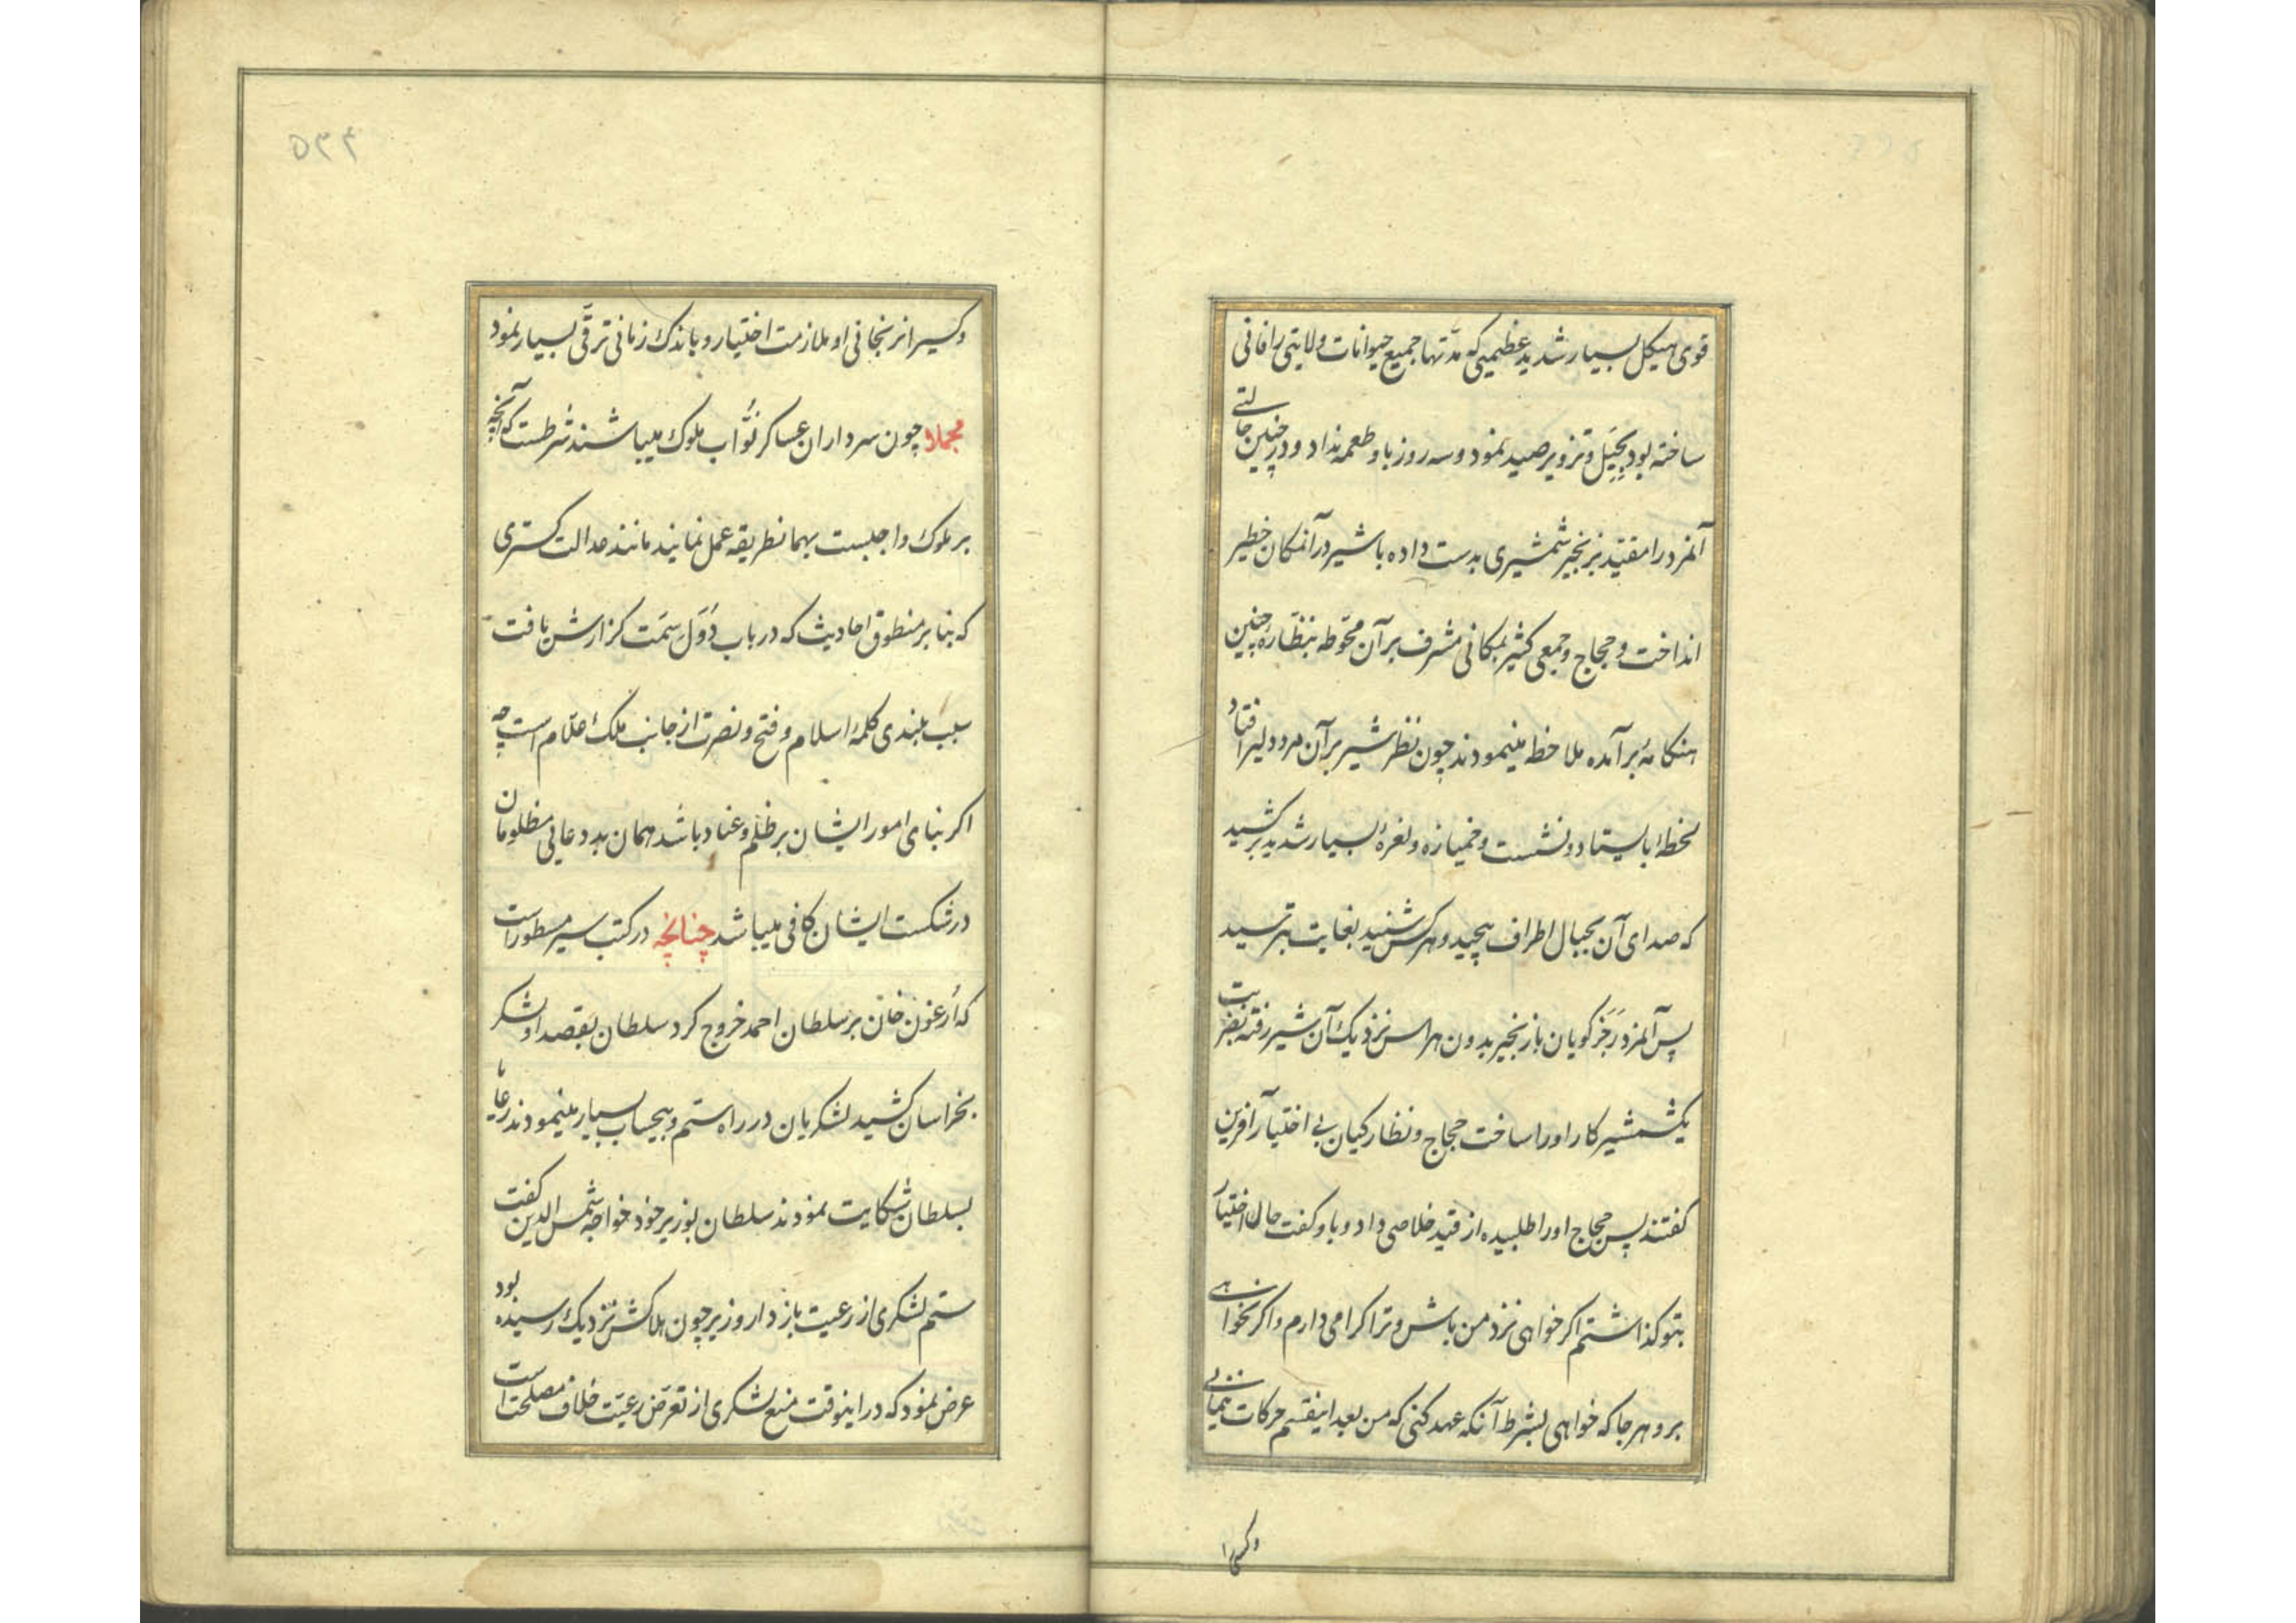 قوی هیکل بسیار شدید عظیمی که مدّتها جمیع حیوانات ولایتی را فانی
ساخته بود بحِیَل و تزویر صید نمود و سه روز باو طعمه نداد و در چنین حالتی
آنمرد را مقیّد بزنجیر شمشیری بدست داده با شیر در آنمکان خطیر
انداخت و حجاج و جمعی کثیر بمکانی مشرف بر آن محوّطه بنظارهٔ چنین
هنکامهٔ برآمده ملاخطه مینمودند چون نظر شیر بر آن مرد دلیر افتاد
لخطهٔ بایستاد و نشست و خمیازه و نعرهٔ بسیار شدید برکشید
که صدای آن بجبال اطراف پیچید و هرکس شنید بغایت بترسید
پس آنمرد رَجَز کویان با زنجیر بدون هراس نزدیک آن شیر رفته بضربت
یکشمشیر کار او را ساخت حجاج و نظارکیان بی اختیار آفرین
کفتند پس حجاج او را طلبیده از قید خلاصی داد و باو کفت حال اختیار
بتو کذاشتم اکر خواهی نزد من باش و ترا کرامی دارم و اکر نخواهی
برو هر جا که خواهی بشرط آنکه عهد کنی که من بعد اینقسم حرکات ننمائی
وکسیرا
۵۳۴
وکسیرا نرنجانی او ملازمت اختیار و باندک زمانی ترقّی بسیار نمود
مجملا چون سرداران عساکر نُوّاب ملوک میباشند شرطست که آنچه
بر ملوک واجبست بهمانطریقه عمل نمایند مانند عدالت کستری
که بنابر منطوق احادیث که در باب دُوَل سِمَت کزارش یافت
سبب بلندی کلمهٔ اسلام و فتح و نصرت از جانب ملک علّام است چه
اکر بنای امور ایشان بر ظلم و عناد باشد همان بد دعایی مظلومان
در شکست ایشان کافی میباشد چنانچه در کتب سیر مسطور است
که اُرغون خان بر سلطان احمد خروج کرد سلطان بقصد او لشکر
بخراسان کشید لشکریان در راه ستم و بیحساب بسیار مینمودند رعایا
بسلطان شکایت نمودند سلطان بوزیر خود خواجه شمس الدین کفت
ستم لشکری از رعیت باز دار وزیر چون هلاکش نزدیک رسیده بود
عرض نمود که در اینوقت منع لشکری از تعرّض رعیّت خلاف مصلحت است